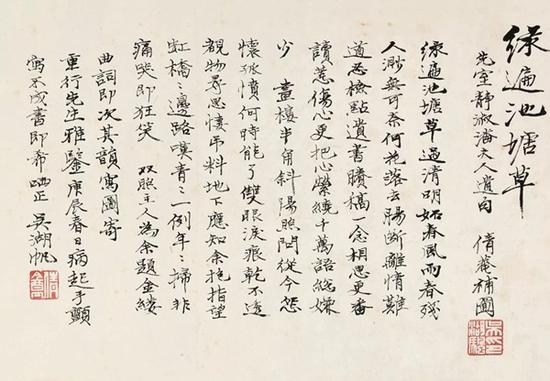 綠遍池塘草
先室靜淑潘夫人遺句 倩菴補圖
吳印湖颿
綠遍池塘草過清明妬春風雨春殘
人渺無可奈何花落去腸斷離情難
道忍檢點遺書賸稿一念相思更番
讀惹傷心更把心縈繞千萬語總嫌
少 畫樓半角斜陽照問從今怨
懷孤憤何時能了雙眼淚痕乾不透
覩物尋思悽弔料地下應知余抱指望
虹橋々邊路嘆青々一例年々掃非
痛哭即狂笑 双照主人為余題金縷
曲詞即次其韻寫圖寄
重行先生雅鑒庚辰春日病起手顫
寫不成書即希哂正 吳湖帆
倩盦